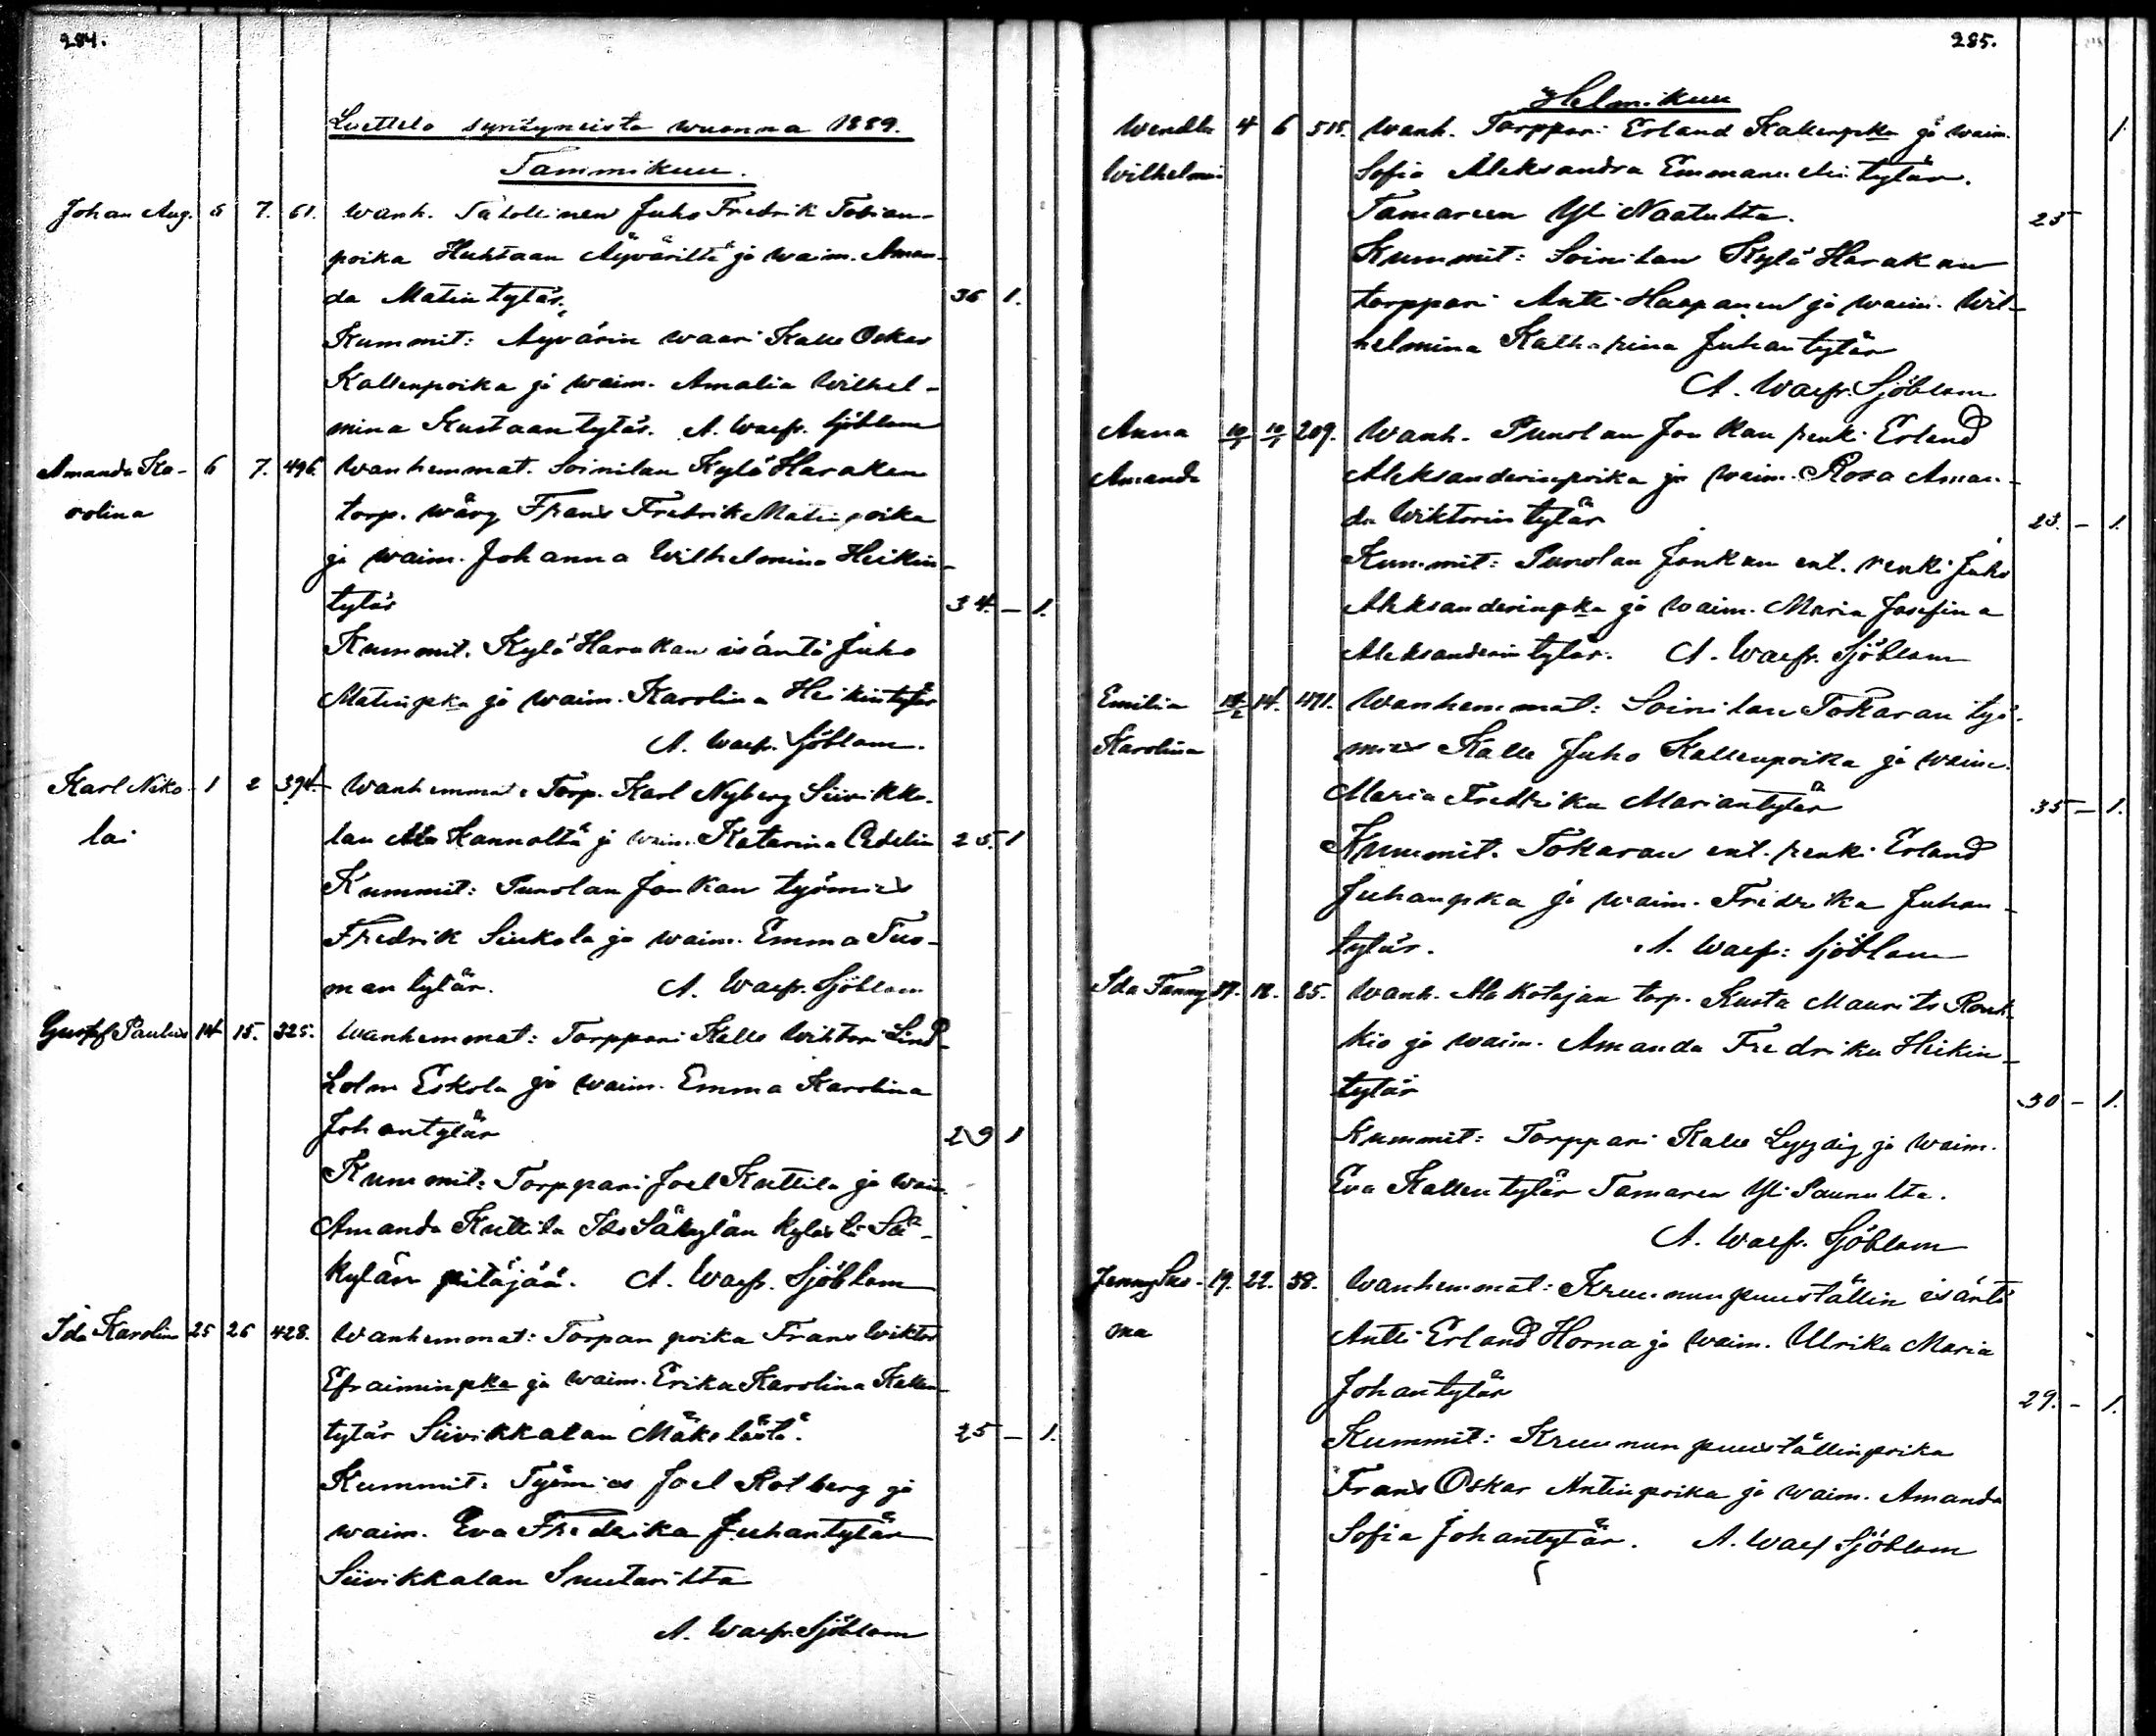 284.
Luettelo syntyneistä wuonna 1889.
Tammikuu.
Johan Aug. 5 7. 61. Wanh. Talollinen Juho Fredrik Tobian-
poika Huhtaan Äyväriltä ja waim. Aman-
da Matintytär. 36 1.
Kummit: Äyvärin waari Kalle Oskar
Kallenpoika ja waim. Amalia Wilhel-
mina Kustaantytär. A. Waefr. Sjöblom
Amanda Ka- 6 7. 496. Wanhemmat. Soinilan Kylä Harakan
rolina torp. wäwy Frans Fredrik Matinpoika
ja waim. Johanna Wilhelmina Heikin-
tytär 34. — 1.
Kummit. Kylä Harakan isäntä Juho
Matinpka ja waim. Karolina Heikintytär
A. Waefr. Sjöblom.
Karl Niko- 1 2 394. Wanhemmat: Torp. Karl Nyberg Siivikka-
lai lan Ala Hannolta ja waim. Katarina Adelia 25. 1
Kummit: Punolan Jonkan työmies
Fredrik Siukola ja waim. Emma Tuo-
mantytär. A. Waefr. Sjöblom
Gustaf Paulus 14 15. 325. Wanhemmat: Torppari Kalle Wihtori Lind-
holm Eskola ja waim. Emma Karolina
Johantytär 29 1
Kummit: Torppari Joel Kuttila ja waim.
Amanda Kuttila Iso Säkylän kylästä Sä-
kylän pitäjää. A. Waefr. Sjöblom
Ida Karolina 25 26 428. Wanhemmat: Torpan poika Frans Wiktor
Efraiminpka ja waim. Erika Karolina Kallen-
tytär Siivikkalan Mäkelästä. 25 — 1.
Kummit: Työmies Joel Rotberg ja
waim. Eva Fredrika Juhantytär
Siivikkalan Suutarilta
A. Waefr. Sjöblom
285.
Helmikuu
Wendla 4 6 515. Wanh. Torppari Erland Kallenpka ja waim. 1
Wilhelmin Sofia Aleksandra Emmanuelintytär.
Tamareen Yli Naatulta. 25
Kummit: Soinilan Kylä Harakan
torppari Antti Haapanen ja waim. Wil-
helmina Katharina Juhantytär
A. Waefr. Sjöblom
Anna 10 10 209. Wanh. Punolan Jonkan renki Erland
Amanda Aleksanderinpoika ja waim. Rosa Aman-
da Wiktorintytär 23. — 1.
Kummit: Punolan Jonkan ent. renki Juho
Aleksanderinpka ja waim. Maria Josefina
Aleksanderintytär. A. Waefr. Sjöblom
Emilia 14. 471. Wanhemmat: Soinilan Tokaran työ-
Karolina mies Kalle Juho Kallenpoika ja waim.
Maria Fredrika Mariantytär 35 — 1.
Kummit. Tokaran ent. renki Erland
Juhanpka ja waim. Fredrika Juhan-
tytär. A. Waefr: Sjöblom
Ida Fanny 17. 18. 85. Wanh. Ala Kotajan torp. Kusta Maurits Rouh-
kio ja waim. Amanda Fredrika Heikin-
tytär 30 — 1.
Kummit: Torppari Kalle Lyydig ja waim.
Eva Kallentytär Tamaren Yli Paunulta.
A. Waefr. Sjöblom
Jenny Suo- 19. 22. 38. Wanhemmat: Kruununpuuställin isäntä
ma Antti Erland Horna ja waim. Ulrika Maria
Johantytär 29. — 1.
Kummit: Kruununpuuställinpoika
Frans Oskar Antinpoika ja waim. Amanda
Sofia Johantytär. A. Waef Sjöblom